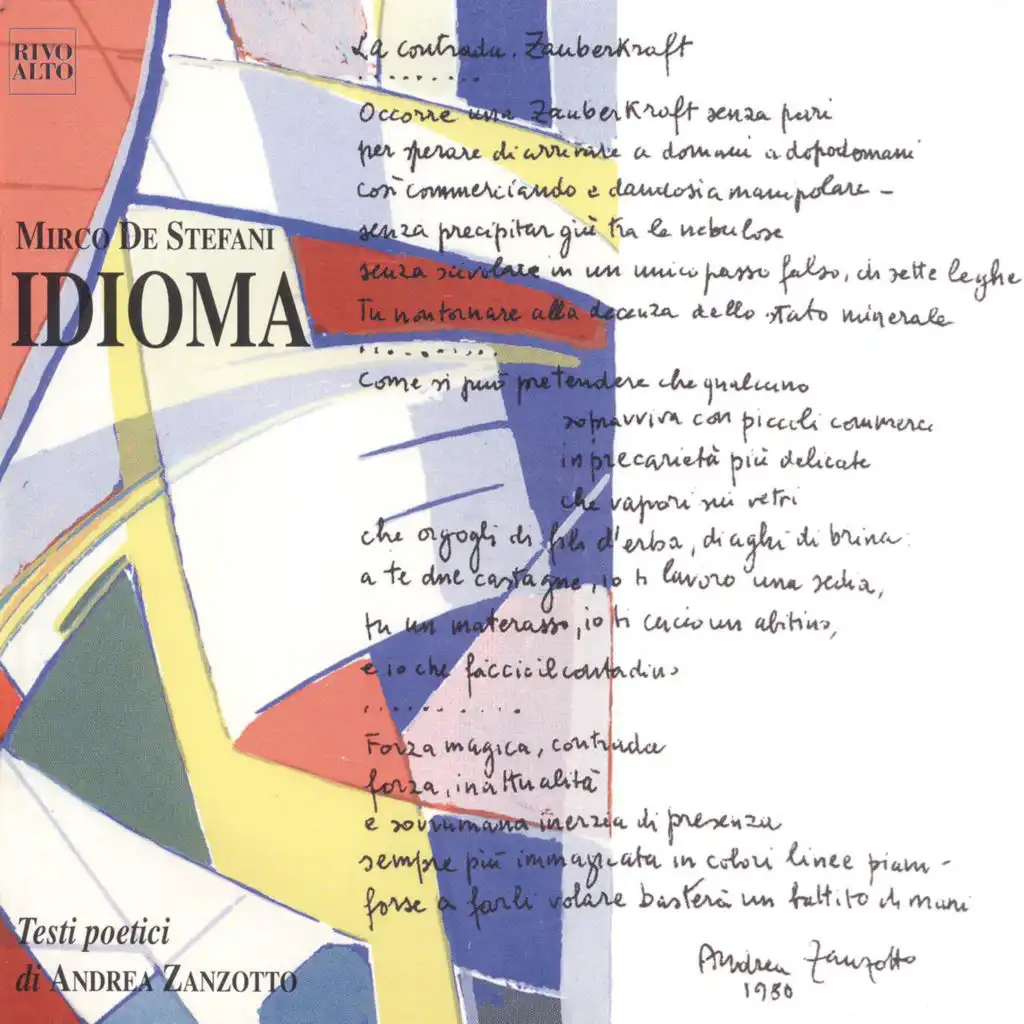 RIVO
ALTO
MIRCO DE STEFANI
IDIOMA
La contrada. Zauberkraft
. . . . . . . . .
Occorre una Zauberkraft senza pari
per sperare di arrivare a domani a dopodomani
così commerciando e dandosi a manipolare –
senza precipitar giù tra le nebulose
senza scivolare in un unico passo falso, di sette leghe
Tu non tornare alla decenza dello stato minerale
. . . . . . . . . .
Come si può pretendere che qualcuno
sopravviva con piccoli commerci
in precarietà più delicate
che vapori sui vetri
che orgogli di fili d'erba, di aghi di brina:
a te due castagne, io ti lavoro una sedia,
tu un materasso, io ti cucio un abitino,
e io che faccio il contadino
. . . . . . . . . .
Forza magica, contrada
forza, inattualità
e sovrumana inerzia di presenza
sempre più immagicata in colori linee piani –
forse a farli volare basterà un battito di mani
Andrea Zanzotto
1980
Testi poetici
di ANDREA ZANZOTTO